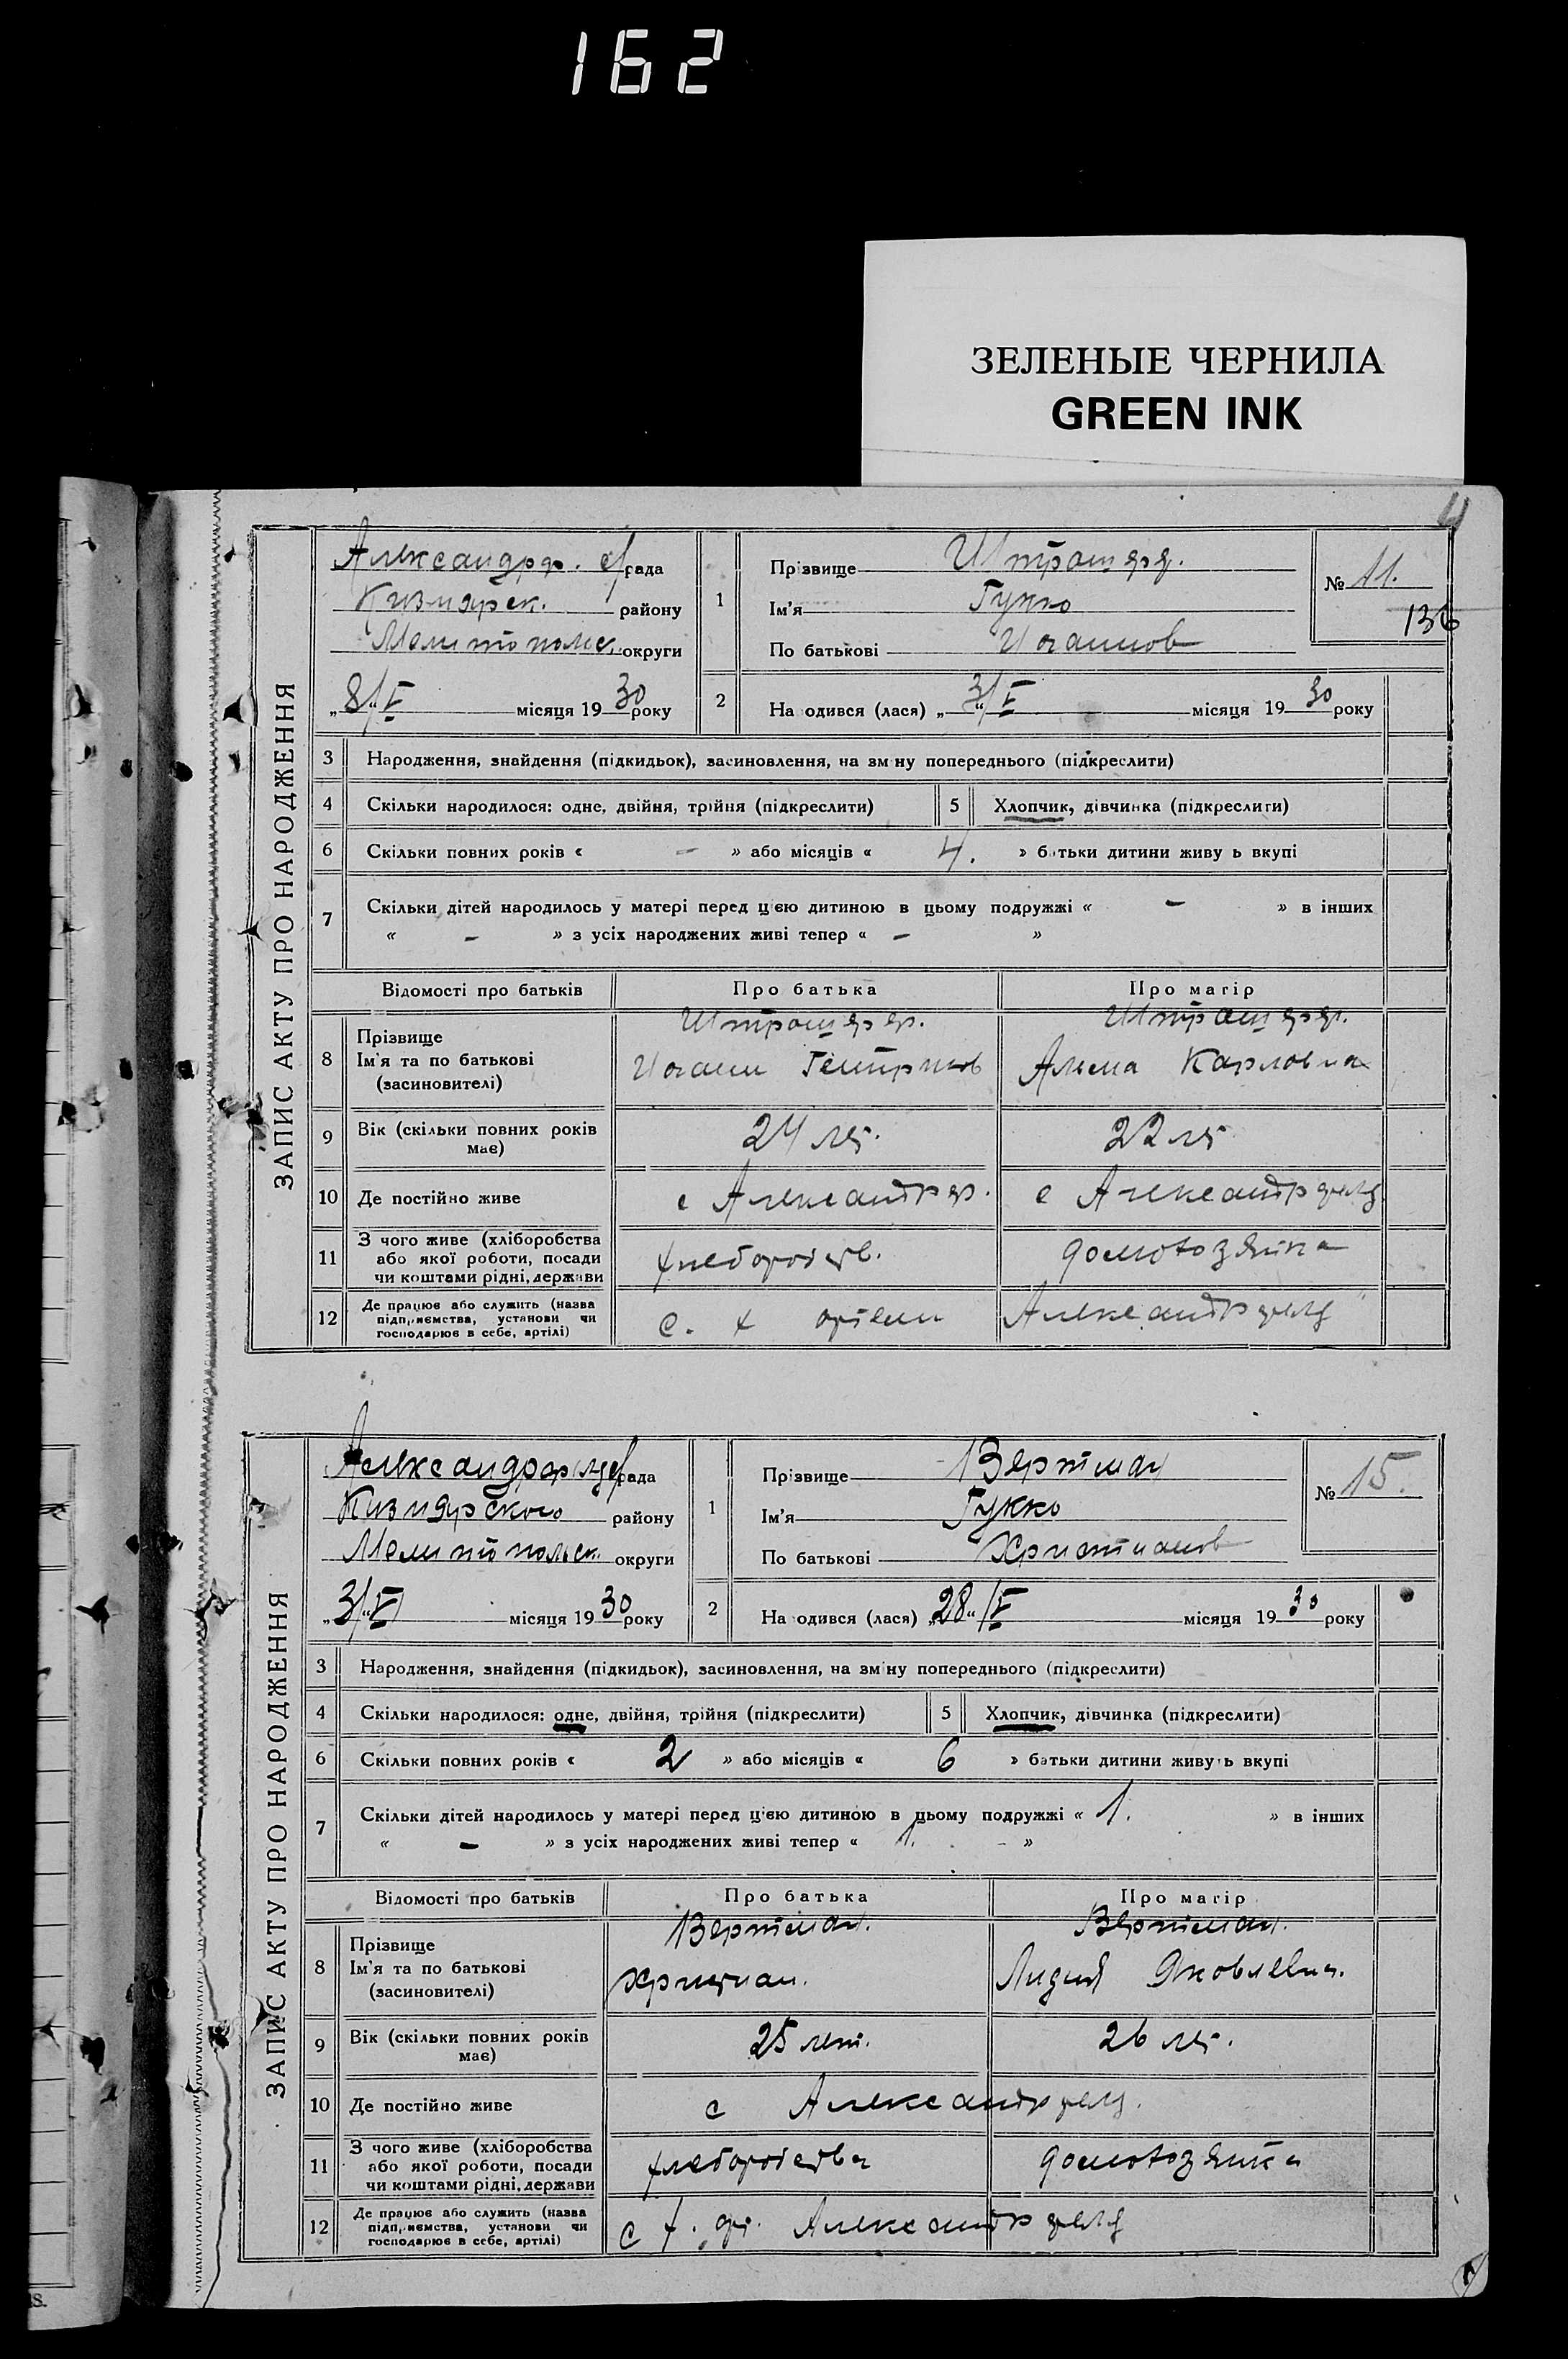 162
ЗЕЛЕНЫЕ ЧЕРНИЛА
GREEN INK
ЗАПИС АКТУ ПРО НАРОДЖЕННЯ
Александрф. с/рада
Кизиярск. району
Мелитопольс. округи
„8/“V місяця 1930 року
1 Прізвище
Ім'я Гукко
По батькові Иоганнов
№ 11.
136
2 На одився (лася) „3/“V місяця 1930 року
3 Народження, знайдення (підкидьок), засиновлення, на зм ну попереднього (підкреслити)
4 Скільки народилося: одне, двійня, трійня (підкреслити) 5 Хлопчик, дівчинка (підкреслити)
6 Скільки повних років « – » або місяців « 4. » батьки дитини живу ь вкупі
7 Скільки дітей народилось у матері перед цією дитиною в цьому подружжі « – » в інших
« – » з усіх народжених живі тепер « – »
Відомості про батьків Про батька Про матір
8 Прізвище
Ім'я та по батькові Иоганн Гейнрихов Альма Карловна
(засиновителі)
9 Вік (скільки повних років має) 24 лет. 22 лет
10 Де постійно живе с Александрф. с Александрфельд
11 З чого живе (хліборобства або якої роботи, посади чи коштами рідні, держави хлеборобств. домохозяйка
12 Де працює або служить (назва підприємства, установи чи господарює в себе, артілі) с. х артели Александрфельд
ЗАПИС АКТУ ПРО НАРОДЖЕННЯ
Александрфельд с/рада
Кизиярского району
Мелитопольск. округи
„3/“VI місяця 1930 року
1 Прізвище Вертман
Ім'я Гукко
По батькові Христианов
№ 15.
2 На одився (лася) „28“/V місяця 1930 року
3 Народження, знайдення (підкидьок), засиновлення, на зм ну попереднього (підкреслити)
4 Скільки народилося: одне, двійня, трійня (підкреслити) 5 Хлопчик, дівчинка (підкреслити)
6 Скільки повних років « 2 » або місяців « 6 » батьки дитини живуть вкупі
7 Скільки дітей народилось у матері перед цією дитиною в цьому подружжі « 1. » в інших
« – » з усіх народжених живі тепер « 1. – »
Відомості про батьків Про батька Про матір
Вертман. Вертман.
8 Прізвище
Ім'я та по батькові Христиан. Лидия Яковлевна.
(засиновителі)
9 Вік (скільки повних років має) 25 лет. 26 лет.
10 Де постійно живе с Александрфельд.
11 З чого живе (хліборобства або якої роботи, посади чи коштами рідні, держави хлеборобства домохозяйка
12 Де працює або служить (назва підприємства, установи чи господарює в себе, артілі) с х. ар. Александрфельд